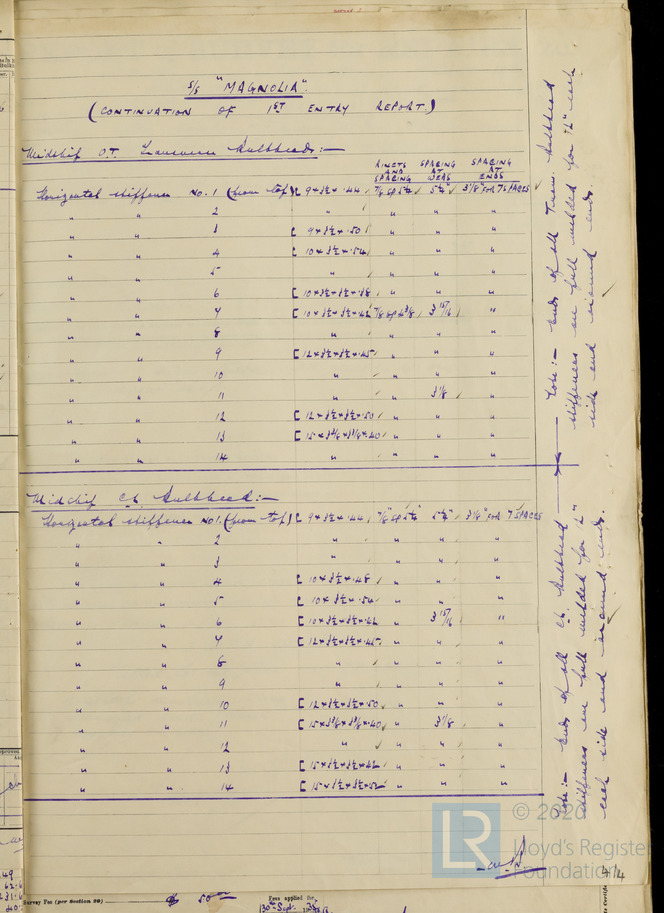 S/S "MAGNOLIA"
(CONTINUATION OF 1ST ENTRY REPORT.)
Midship O.T. Transverse Bulkheads:—
RIVETS AND SPACING SPACING AT WEBS SPACING AT ENDS
Horizontal stiffener No. 1 (from top) [ 9 × 3½ × .44 7/8 sp 5¼ 5¼" 3⅛" for 7 SPACES
" " 2 " " " "
" " 3 [ 9 × 3½ × .50 " " "
" " 4 [ 10 × 3½ × .54 " " "
" " 5 " " " "
" " 6 [ 10 × 3½ × 3½ × .38 " " "
" " 7 [ 10 × 3½ × 3½ × .42 7/8 sp 4⅜ 3 15/16 "
" " 8 " " " "
" " 9 [ 12 × 3½ × 3½ × .45 " " "
" " 10 " " " "
" " 11 " " 3⅛ "
" " 12 [ 12 × 3½ × 3½ × .50 " " "
" " 13 [ 15 × 3⅜ × 3⅜ × .40 " " "
" " 14 " " " "
Midship CL Bulkhead:—
Horizontal stiffener No 1. (from top) [ 9 × 3½ × .44 7/8" sp 5¼" 5¼" 3⅛" for 7 SPACES
" " 2 " " " "
" " 3 " " " "
" " 4 [ 10 × 3½ × .48 " " "
" " 5 [ 10 × 3½ × .54 " " "
" " 6 [ 10 × 3½ × 3½ × .42 " 3 15/16 "
" " 7 [ 12 × 3½ × 3½ × .45 " " "
" " 8 " " " "
" " 9 " " " "
" " 10 [ 12 × 3½ × 3½ × .50 " " "
" " 11 [ 15 × 3⅜ × 3⅜ × .40 " 3⅛ "
" " 12 " " " "
" " 13 [ 15 × 3½ × 3½ × .42 " " "
" " 14 [ 15 × 3½ × 3½ × .52 " " "
Note:— Ends of all Trans. bulkhead
stiffeners are full welded for 12" each
side end around ends.
Note:— Ends of all CL bulkhead
stiffeners are full welded for 12"
each side end around ends.
© 2020
LR
Lloyd's Register
Foundation
4/4
Survey Fee (per Section 29) 50
Fees applied for,
30th Sept.